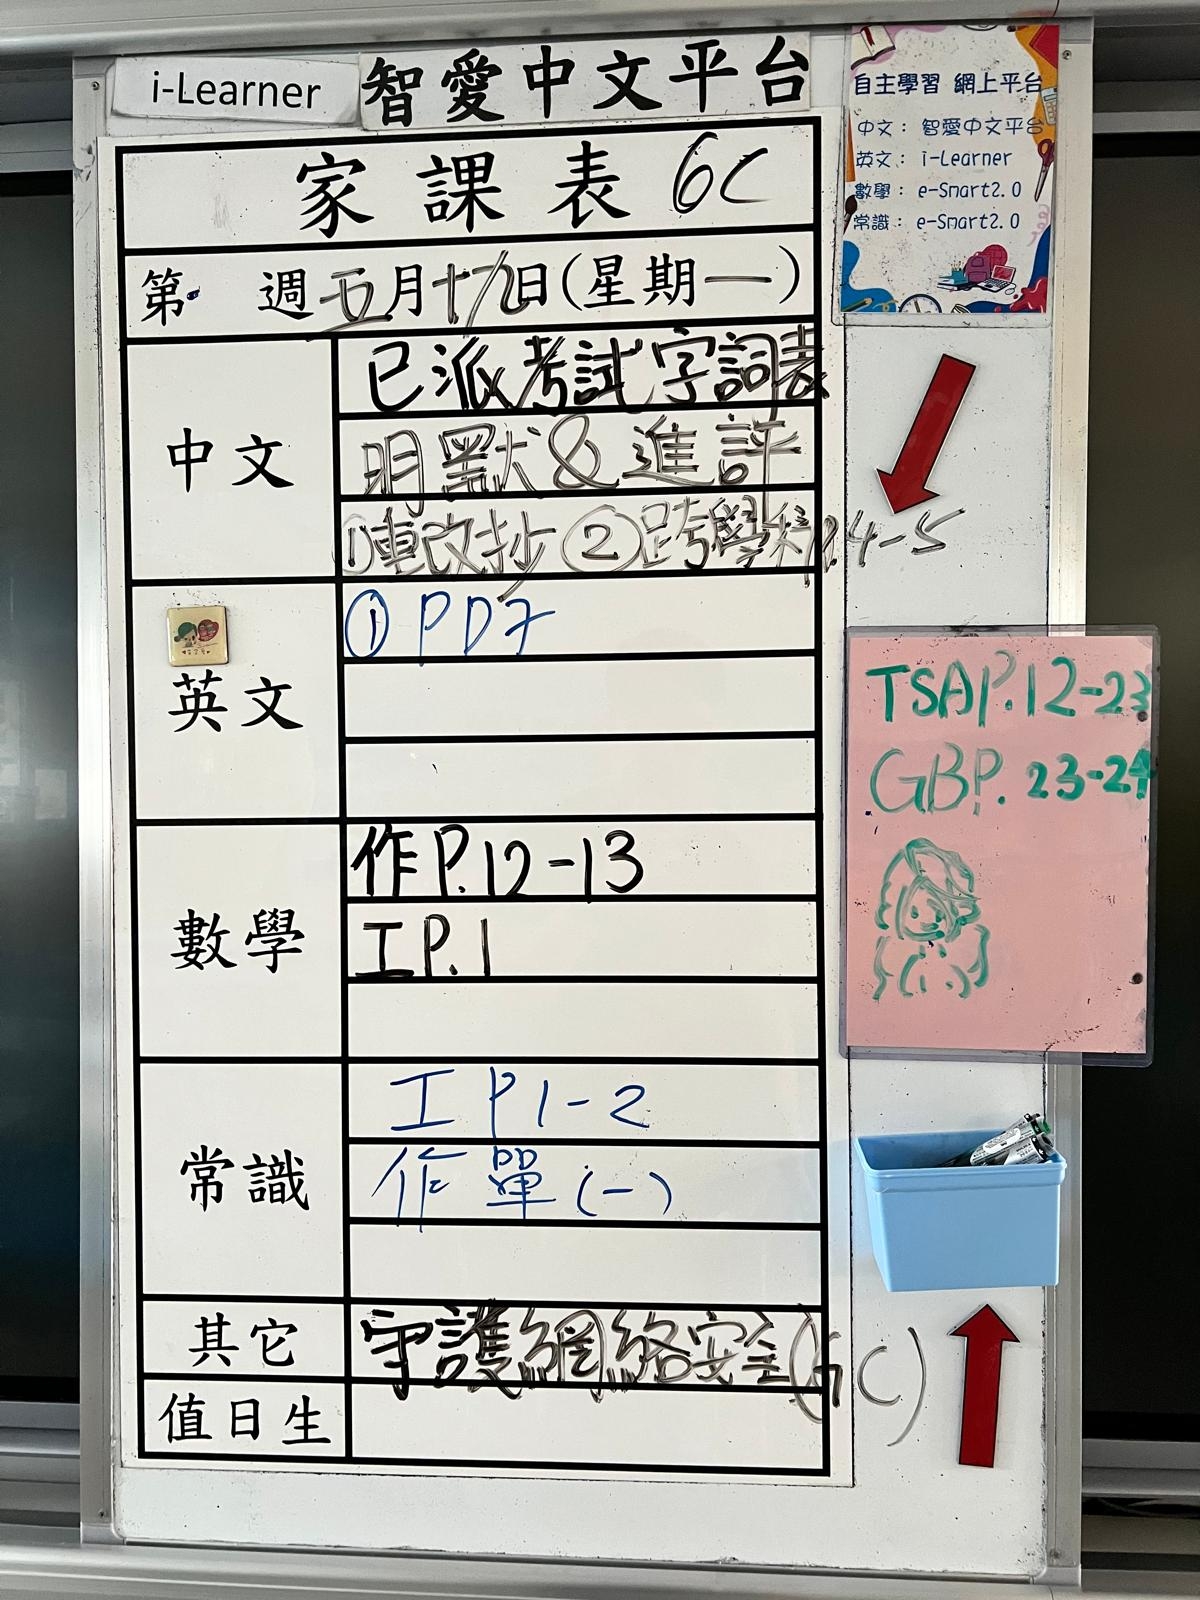 i-Learner 智愛中文平台
家課表 6C
第 週 五月十九日(星期一)
中文
已派考試字詞表
明默&進評
①專改抄 ②跨學科P.4-5
英文
① PD7
數學
作P.12-13
工P.1
常識
工 P1-2
作單(一)
其它
守護網絡安全(GC)
值日生
自主學習 網上平台
中文： 智愛中文平台
英文： i-Learner
數學： e-Smart2.0
常識： e-Smart2.0
TSAP.12-23
GBP. 23-24